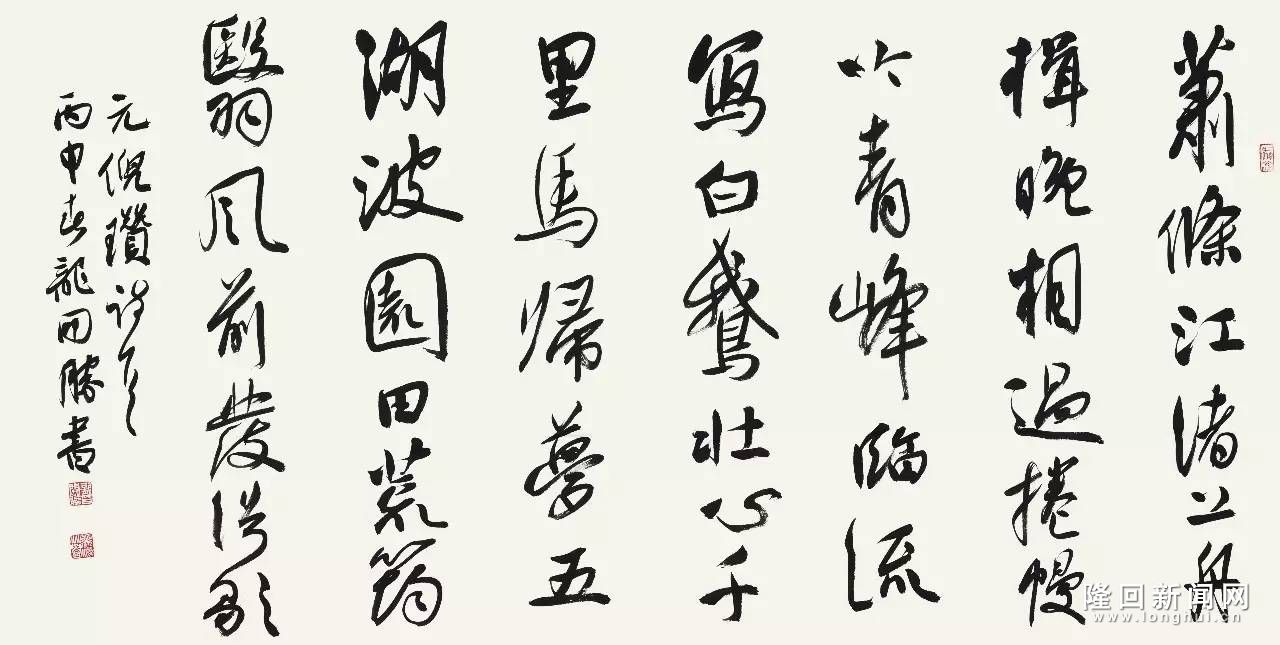 蕭條江渚上舟
楫晚相過捲幔
吟青峰臨流
寫白鵝壯心千
里馬歸夢五
湖波園田荒筠
翳風前發浩歌
元倪瓚詩
丙申春龍勝書
隆回新闻网
www.longhui.cn